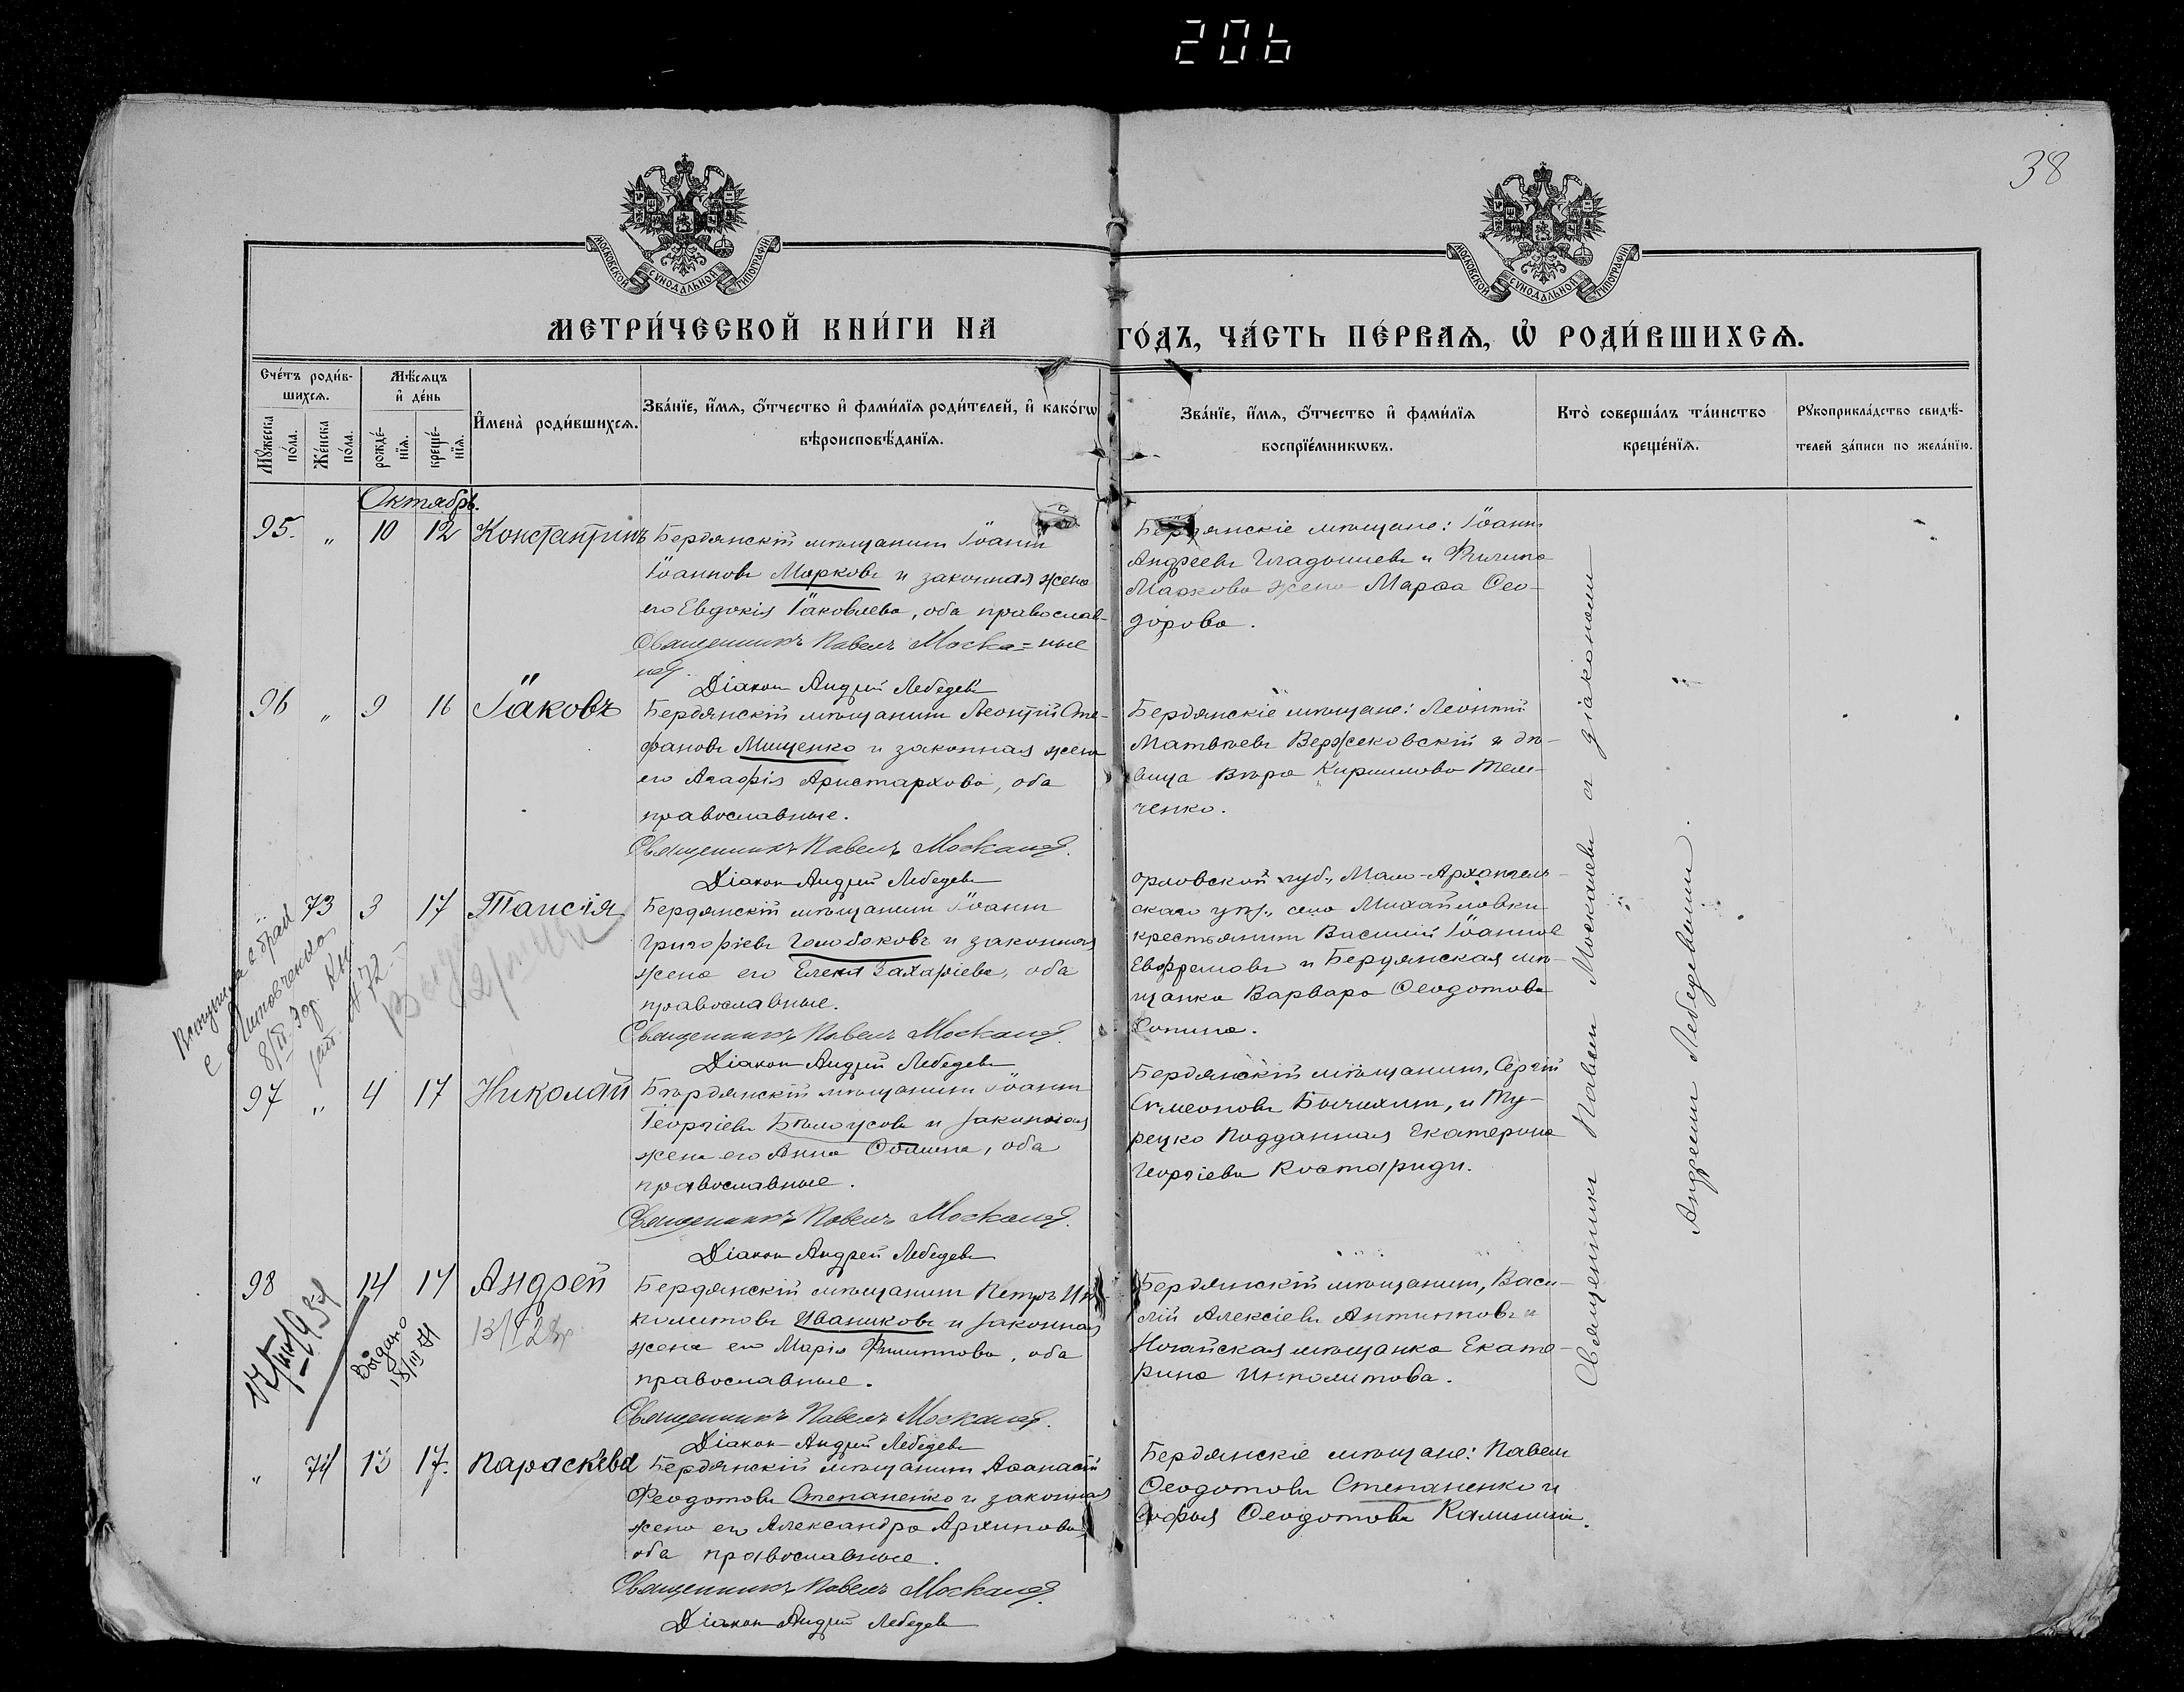 206
38
МОСКОВСКОЙ СѴНОДАЛЬНОЙ ТИПОГРАФІИ
МОСКОВСКОЙ СѴНОДАЛЬНОЙ ТИПОГРАФІИ
МЕТРИ́ЧЕСКОЙ КНИ́ГИ НА
ГО́ДЪ, ЧА́СТЬ ПЕ́РВАѦ, Ѡ҆ РОДИ́ВШИХСѦ.
Сче́тъ роди́в-
шихсѧ.
Мꙋ́жеска
по́ла.
Же́нска
по́ла.
Мѣ́сѧцъ
и҆ де́нь
рожде́-
нїѧ.
креще́-
нїѧ.
И҆мена̀ роди́вшихсѧ.
Зва́нїе, и҆́мѧ, ѻ҆́тчество и҆ фами́лїѧ роди́телей, и҆ како́гѡ
вѣроисповѣ́данїѧ.
Зва́нїе, и҆́мѧ, ѻ҆́тчество и҆ фами́лїѧ
воспрїе́мникѡвъ.
Кто̀ соверша́лъ та́инство
креще́нїѧ.
Рꙋкоприкла́дство свидѣ́-
телей за́писи по жела́нїю.
Октябрь.
95. " 10 12 Константинъ
Бердянскій мѣщанинъ Іоаннъ
Іоанновъ Марковъ и законная жена
его Евдокія Іаковлева, оба православ-
ные
Священникъ Павелъ Москалев.
Діаконъ Андрей Лебедевъ
Бердянскіе мѣщане: Іоаннъ
Андреевъ Гладышевъ и Филипа
Маркова жена Марѳа Ѳео-
дорова.
96 " 9 16 Іаковъ
Бердянскій мѣщанинъ Леонтій Сте-
фановъ Мищенко и законная жена
его Агафія Аристархова, оба
православные.
Священникъ Павелъ Москалев.
Діаконъ Андрей Лебедевъ
Бердянскіе мѣщане: Леонтій
Матвѣевъ Вержековскій и дѣ-
вица Вѣра Кириллова Тем-
ченко.
73 3 17 Таисія
Бердянскій мѣщанинъ Іоаннъ
Григоріевъ Голобоковъ и законная
жена его Елена Захаріева, оба
православные.
Священникъ Павелъ Москалев.
Діаконъ Андрей Лебедевъ
Орловской губ., Мало-Архангель-
скаго уѣз., села Михайловки
крестьянинъ Василій Іоаннов
Евфремовъ и Бердянская мѣ-
щанка Варвара Ѳеодотова
Вступила в брак
с Литовченко
8/III 30г.
№ 72
97 " 4 17 Николай
Бердянскій мѣщанинъ Іоаннъ
Георгіевъ Бѣлоусовъ и законная
жена его Анна Ѳомина, оба
православные.
Священникъ Павелъ Москалев.
Діаконъ Андрей Лебедевъ
Бердянскій мѣщанинъ, Сергій
Симеоновъ Бычихинъ, и Ту-
рецко подданная Екатерина
Георгіева Костариди.
98 14 17 Андрей
Бердянскій мѣщанинъ Петръ Ип-
политовъ Иваниковъ и законная
жена его Марія Филиппова, оба
православные.
Священникъ Павелъ Москалев.
Діаконъ Андрей Лебедевъ
Бердянскій мѣщанинъ, Васи-
лій Алексіевъ Антиповъ и
Ногайская мѣщанка Екате-
рина Ипполитова.
" 74 13 17. Параскева
Бердянскій мѣщанинъ Аѳанасій
Феодотовъ Степаненко и законная
жена его Александра Архипова,
оба православные.
Священникъ Павелъ Москалев.
Діаконъ Андрей Лебедевъ
Бердянскіе мѣщане: Павелъ
Ѳеодотовъ Степаненко и
Софья Ѳеодотова Калинина.
Священникъ Павелъ Москалевъ съ діакономъ
Андреемъ Лебедевымъ.